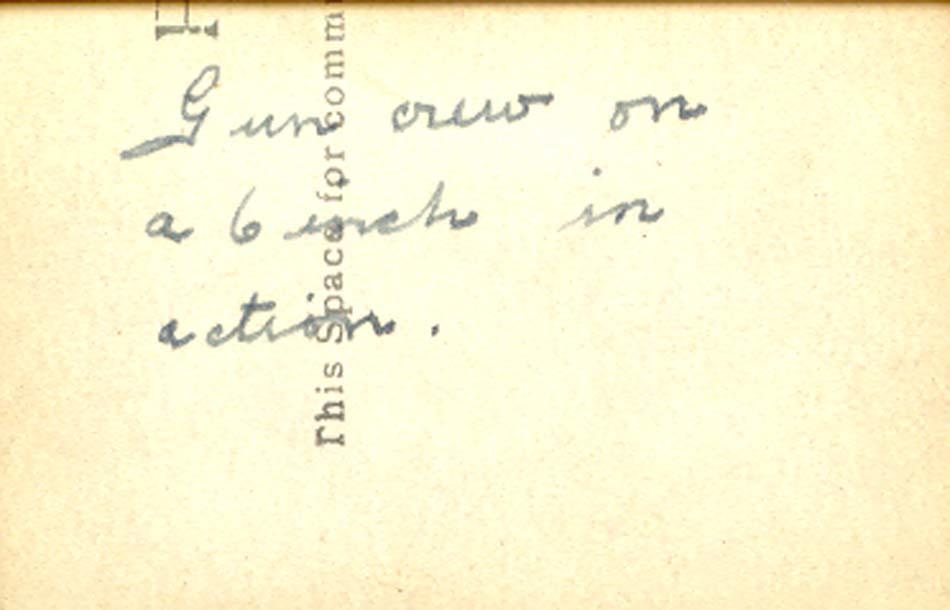 Gun crew on
a 6 inch in
action.
This Space for comm